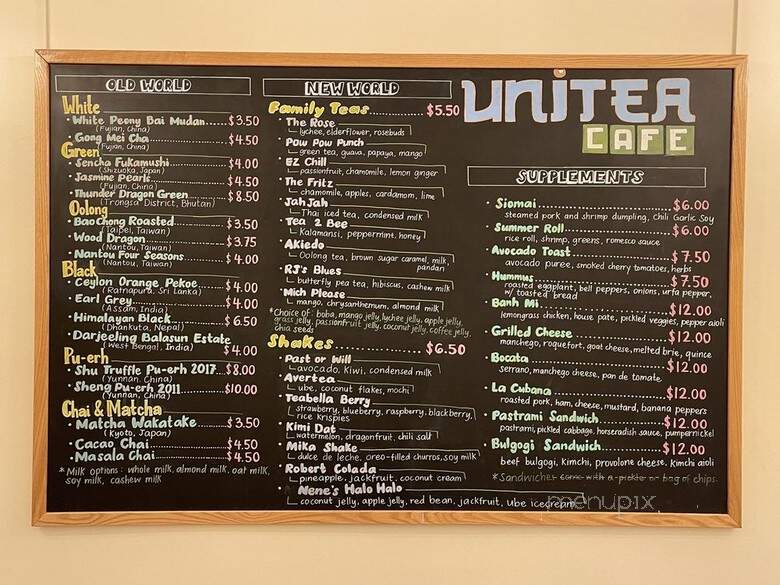 OLD WORLD
White
• White Peony Bai Mudan......$3.50
(Fujian, China)
• Gong Mei Cha..........$4.50
(Fujian, China)
Green
• Sencha Fukamushi..........$4.00
(Shizuoka, Japan)
• Jasmine Pearls..........$4.50
(Fujian, China)
• Thunder Dragon Green......$8.50
(Trongsa District, Bhutan)
Oolong
• Bao Chong Roasted..........$3.50
(Taipei, Taiwan)
• Wood Dragon..........$3.75
(Nantou, Taiwan)
• Nantou Four Seasons......$4.00
(Nantou, Taiwan)
Black
• Ceylon Orange Pekoe......$4.00
(Ratnapura, Sri Lanka)
• Earl Grey..........$4.00
(Assam, India)
• Himalayan Black..........$6.50
(Dhankuta, Nepal)
• Darjeeling Balasun Estate
(West Bengal, India) $4.00
Pu-erh
• Shu Truffle Pu-erh 2017...$8.00
(Yunnan, China)
• Sheng Pu-erh 2011..........$10.00
(Yunnan, China)
Chai & Matcha
• Matcha Wakatake..........$3.50
(Kyoto, Japan)
• Cacao Chai..........$4.50
• Masala Chai..........$4.50
* Milk options: whole milk, almond milk, oat milk,
soy milk, cashew milk
NEW WORLD
Family Teas..........$5.50
• The Rose
lychee, elderflower, rosebuds
• Pow Pow Punch
green tea, guava, papaya, mango
• EZ Chill
passionfruit, chamomile, lemon ginger
• The Fritz
chamomile, apples, cardamom, lime
• Jah Jah
Thai iced tea, condensed milk
• Tea 2 Bee
Kalamansi, peppermint, honey
• Akiedo
Oolong tea, brown sugar caramel, milk
pandan
• RJ's Blues
butterfly pea tea, hibiscus, cashew milk
• Mich Please
mango, chrysanthemum, almond milk
*Choice of: boba, mango jelly, lychee jelly, apple jelly,
grass jelly, passionfruit jelly, coconut jelly, coffee jelly,
chia seeds
Shakes..........$6.50
• Past or Will
avocado, kiwi, condensed milk
• Avertea
ube, coconut flakes, mochi
• Teabella Berry
strawberry, blueberry, raspberry, blackberry,
rice krispies
• Kimi Dat
watermelon, dragonfruit, chili salt
• Mika Shake
dulce de leche, oreo-filled churros, soy milk
• Robert Colada
pineapple, jackfruit, coconut cream
• Nene's Halo Halo
coconut jelly, apple jelly, red bean, jackfruit, ube icecream
UNITEA
CAFE
SUPPLEMENTS
• Siomai..........$6.00
steamed pork and shrimp dumpling, Chili Garlic Soy
• Summer Roll..........$6.00
rice roll, shrimp, greens, romesco sauce
• Avocado Toast..........$7.50
avocado puree, smoked cherry tomatoes, herbs
• Hummus..........$7.50
roasted eggplant, bell peppers, onions, urfa pepper,
w/ toasted bread
• Banh Mi..........$12.00
lemongrass chicken, house pate, pickled veggies, pepper aioli
• Grilled Cheese..........$12.00
manchego, roquefort, goat cheese, melted brie, quince
• Bocata..........$12.00
serrano, manchego cheese, pan de tomate
• La Cubana..........$12.00
roasted pork, ham, cheese, mustard, banana peppers
• Pastrami Sandwich..........$12.00
pastrami, pickled cabbage, horseradish sauce, pumpernickel
• Bulgogi Sandwich..........$12.00
beef bulgogi, kimchi, provolone cheese, kimchi aioli
* Sandwiches come with a pickle or bag of chips.
menupix